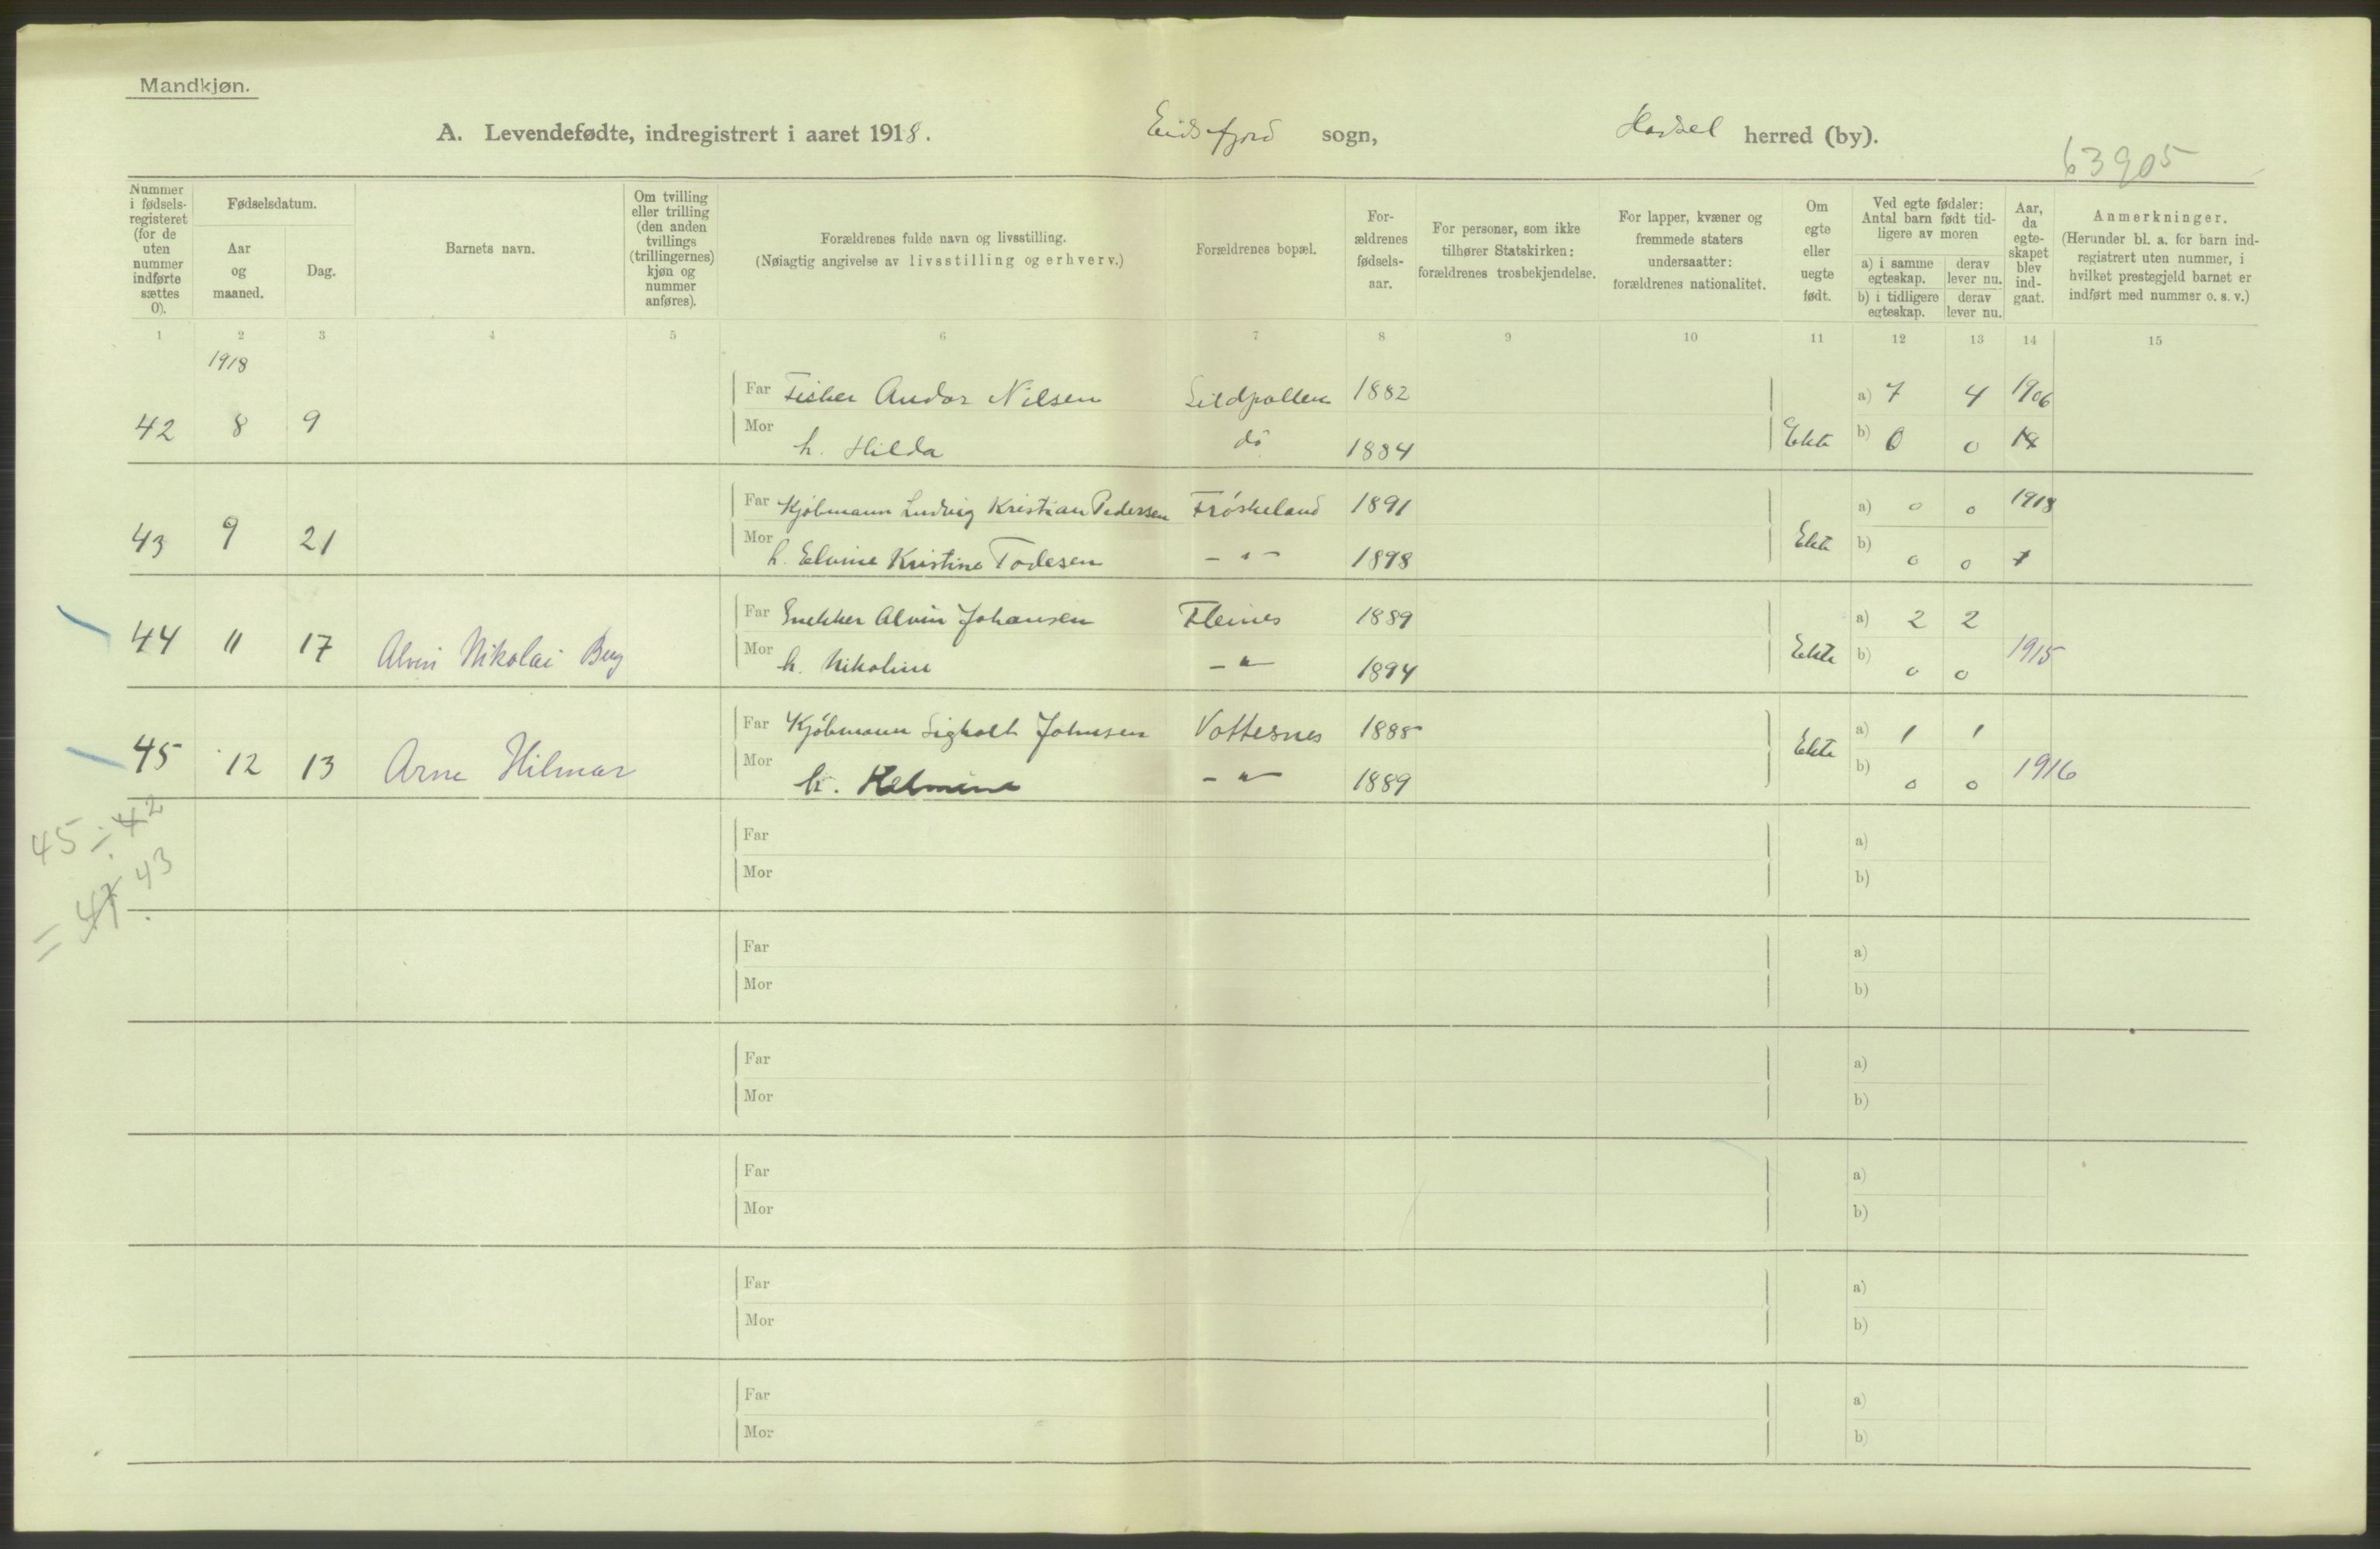 Mandkjøn.
A. Levendefødte, indregistrert i aaret 1918. Eidsfjord sogn, Hadsel herred (by).
63905
Nummer i fødsels-registeret (for de uten nummer indførte sættes 0).
Fødselsdatum.
Aar og maaned.
Dag.
Barnets navn.
Om tvilling eller trilling (den anden tvillings (trillingernes) kjøn og nummer anføres).
Forældrenes fulde navn og livsstilling.
(Nøiagtig angivelse av livsstilling og erhverv.)
Forældrenes bopæl.
For-ældrenes fødsels-aar.
For personer, som ikke tilhører Statskirken: forældrenes trosbekjendelse.
For lapper, kvæner og fremmede staters undersaatter: forældrenes nationalitet.
Om egte eller uegte født.
Ved egte fødsler: Antal barn født tid-ligere av moren
a) i samme egteskap. derav lever nu.
b) i tidligere egteskap. derav lever nu.
Aar, da egte-skapet blev ind-gaat.
Anmerkninger.
(Herunder bl. a. for barn ind-registrert uten nummer, i hvilket prestegjeld barnet er indført med nummer o. s. v.)
1 2 3 4 5 6 7 8 9 10 11 12 13 14 15
1918
Far Fisker Andor Nilsen Sildpollen 1882 a) 7 4 1906
42 8 9 Mor h. Hilda do 1884 Ekte b) 0 0
Far Kjøbmann Ludvig Kristian Pedersen Frøskeland 1891 a) 0 0 1918
43 9 21 Mor h. Elvine Kristine Todesen - " - 1898 Ekte b) 0 0
Far Snekker Alvin Johansen Fleines 1889 a) 2 2
44 11 17 Alvin Nikolai Berg Mor h. Nikoline - " - 1894 Ekte b) 0 0 1915
Far Kjøbmann Sigholt Johnsen Vottesnes 1888 a) 1 1
45 12 13 Arne Hilmar Mor h. Helmine - " - 1889 Ekte b) 0 0 1916
45 ÷ 42
= 43
Far a)
Mor b)
Far a)
Mor b)
Far a)
Mor b)
Far a)
Mor b)
Far a)
Mor b)
Far a)
Mor b)